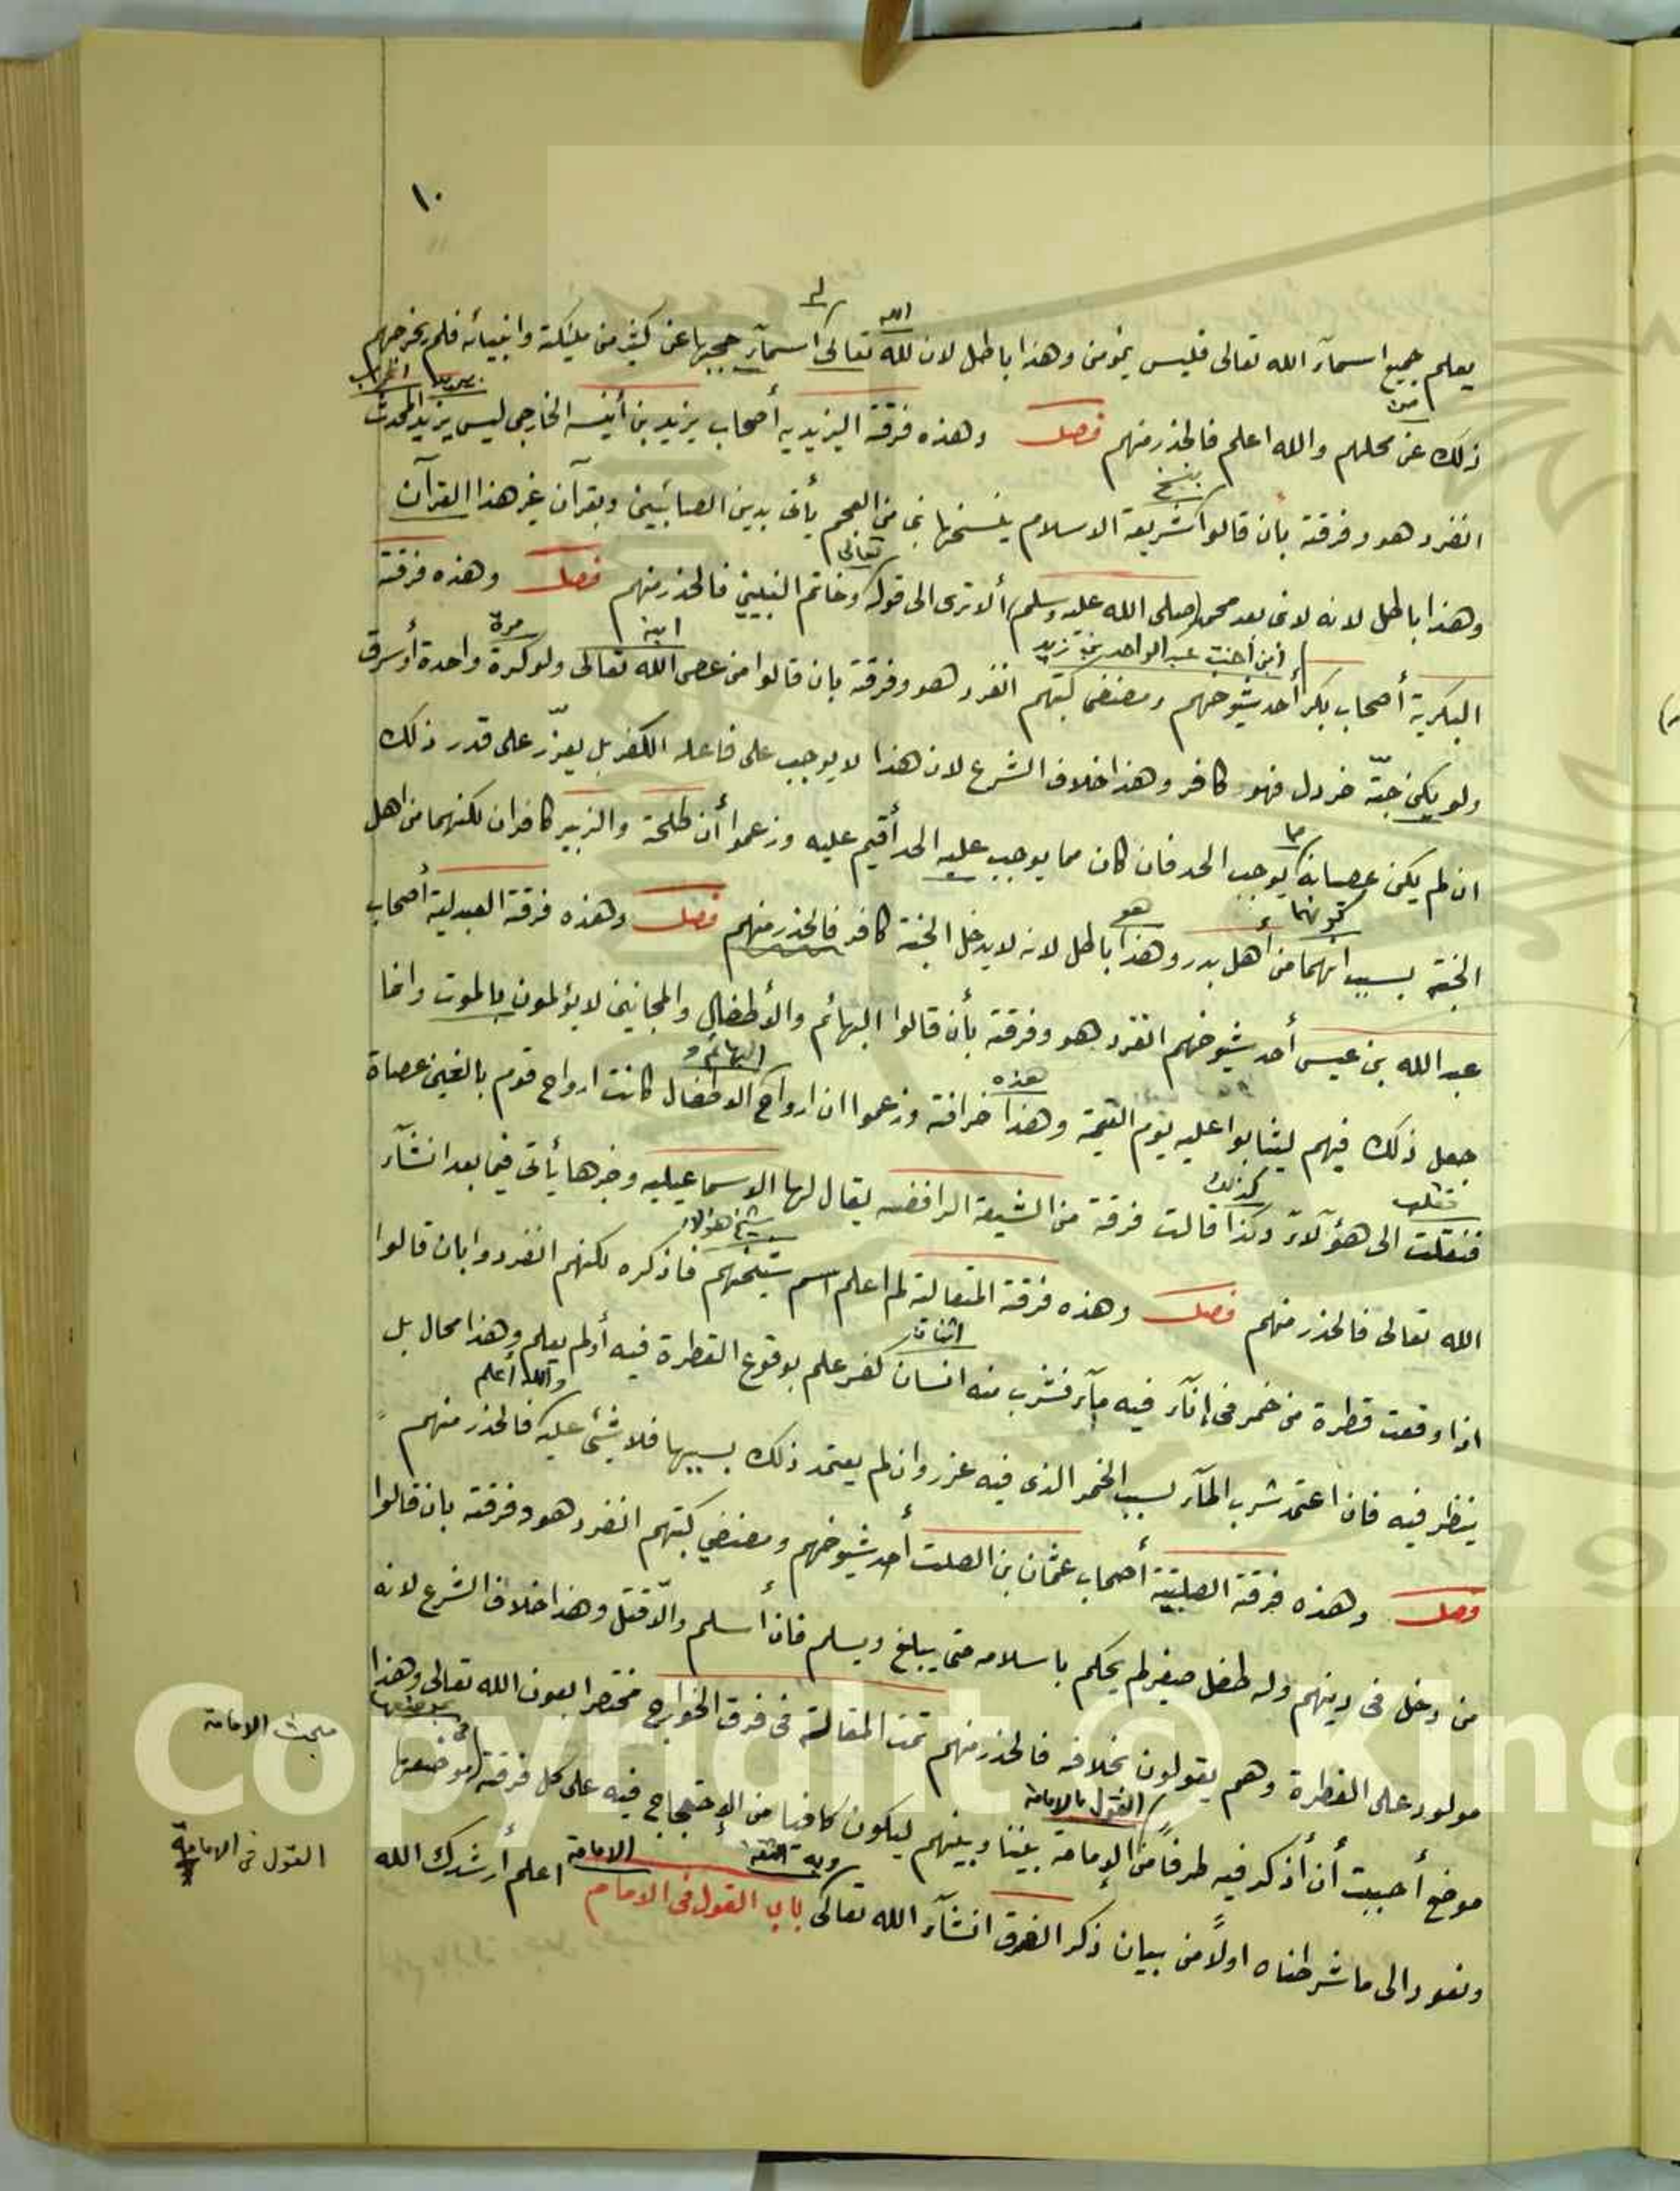 ١٠
يعلم جميع اسمآء الله تعالى فليس بمؤمن وهذا باطل لان لله تعالى اسمآء حجبها عن كثير من مليكته وانبيائه فلم يخرجهم
الله
له
ذلك عن محلهم والله اعلم فالحذر منهم فصل وهذه فرقة اليزيديه أصحاب يزيد بن أنيسه الخارجى ليس يزيد المحدث
من
يزيد
انفرد هو وفرقته بأن قالوا شريعة الاسلام ينسخها نبى من العجم يأتى بدين الصابئين وبقرآن غير هذا القرآن
وهذا باطل لانه لا نبى بعد محمد (صلى الله عليه وسلم) ألا ترى الى قوله وخاتم النبيين فالحذر منهم فصل وهذه فرقة
تعالى
البكرية أصحاب بكر أحد شيوخهم ومصنفى كتبهم انفرد هو وفرقته بان قالوا من عصى الله تعالى ولو كرة واحدة أو سرق
ابن أخت عبد الواحد بن زيد
مرة
ولو يكن حبّة خردل فهو كافر وهذا خلاف الشرع لان هذا لا يوجب على فاعله الكفر بل يعزّر على قدر ذلك
ان لم يكن عصيانه يوجب الحد فان كان مما يوجب عليه الحد أقيم عليه وزعموا أن طلحة والزبير كافران لكنهما من اهل
ما
الجنة بسبب انهما من أهل بدر وهذا باطل لانه لا يدخل الجنة كافر فالحذر منهم فصل وهذه فرقة العبدلية أصحاب
كونهما
هو
عبد الله بن عيسى أحد شيوخهم انفرد هو وفرقته بأن قالوا البهائم والأطفال والمجانين لا يؤلمون بالموت وانما
جعل ذلك فيهم ليثابوا عليه يوم القيمة وهذا خرافة وزعموا ان ارواح الاطفال كانت ارواح قوم بالغين عصاة
هذه
البهائم و
فنقلت الى هؤلآء وكذا قالت فرقة من الشيعة الرافضه يقال لها الاسماعيليه وخبرها يأتى فيما بعد انشآء
كذلك
الله تعالى فالحذر منهم فصل وهذه فرقة المتعالة لم اعلم اسم شيخهم فاذكره لكنهم انفردوا بان قالوا
شيخ هؤلاء
اذا وقعت قطرة من خمر فى إنآء فيه مآء فشرب منه انسان كفر علم بوقوع القطرة فيه أو لم يعلم وهذا محال بل
ينظر فيه فان اعتمد شرب المآء بسبب الخمر الذى فيه عزر وان لم يعتمد ذلك بسببها فلا شئ عليه فالحذر منهم
والله أعلم
فصل وهذه فرقة الصلتية أصحاب عثمان بن الصلت أحد شيوخهم ومصنفى كتبهم انفرد هو وفرقته بان قالوا
من دخل فى دينهم وله طفل صغير لم يحكم باسلامه حتى يبلغ ويسلم فان أسلم والّا قتل وهذا خلاف الشرع لانه
مولود على الفطرة وهم يقولون بخلافه فالحذر منهم تمت المقالة فى فرق الخوارج مختصرا بعون الله تعالى وهذا
موضع أحببت أن أذكر فيه طرفاً من الإمامة بيننا وبينهم ليكون كافيا من الإحتجاج فيه على كل فرقة موضعها
القول بالامامة
فى
ونعود الى ما شرطناه اولاً من بيان ذكر الفرق انشآء الله تعالى باب القول فى الامام اعلم أرشدك الله
وبه الثقة
الامامة
مبحث الامامة
القول فى الامامة
Copyright © King